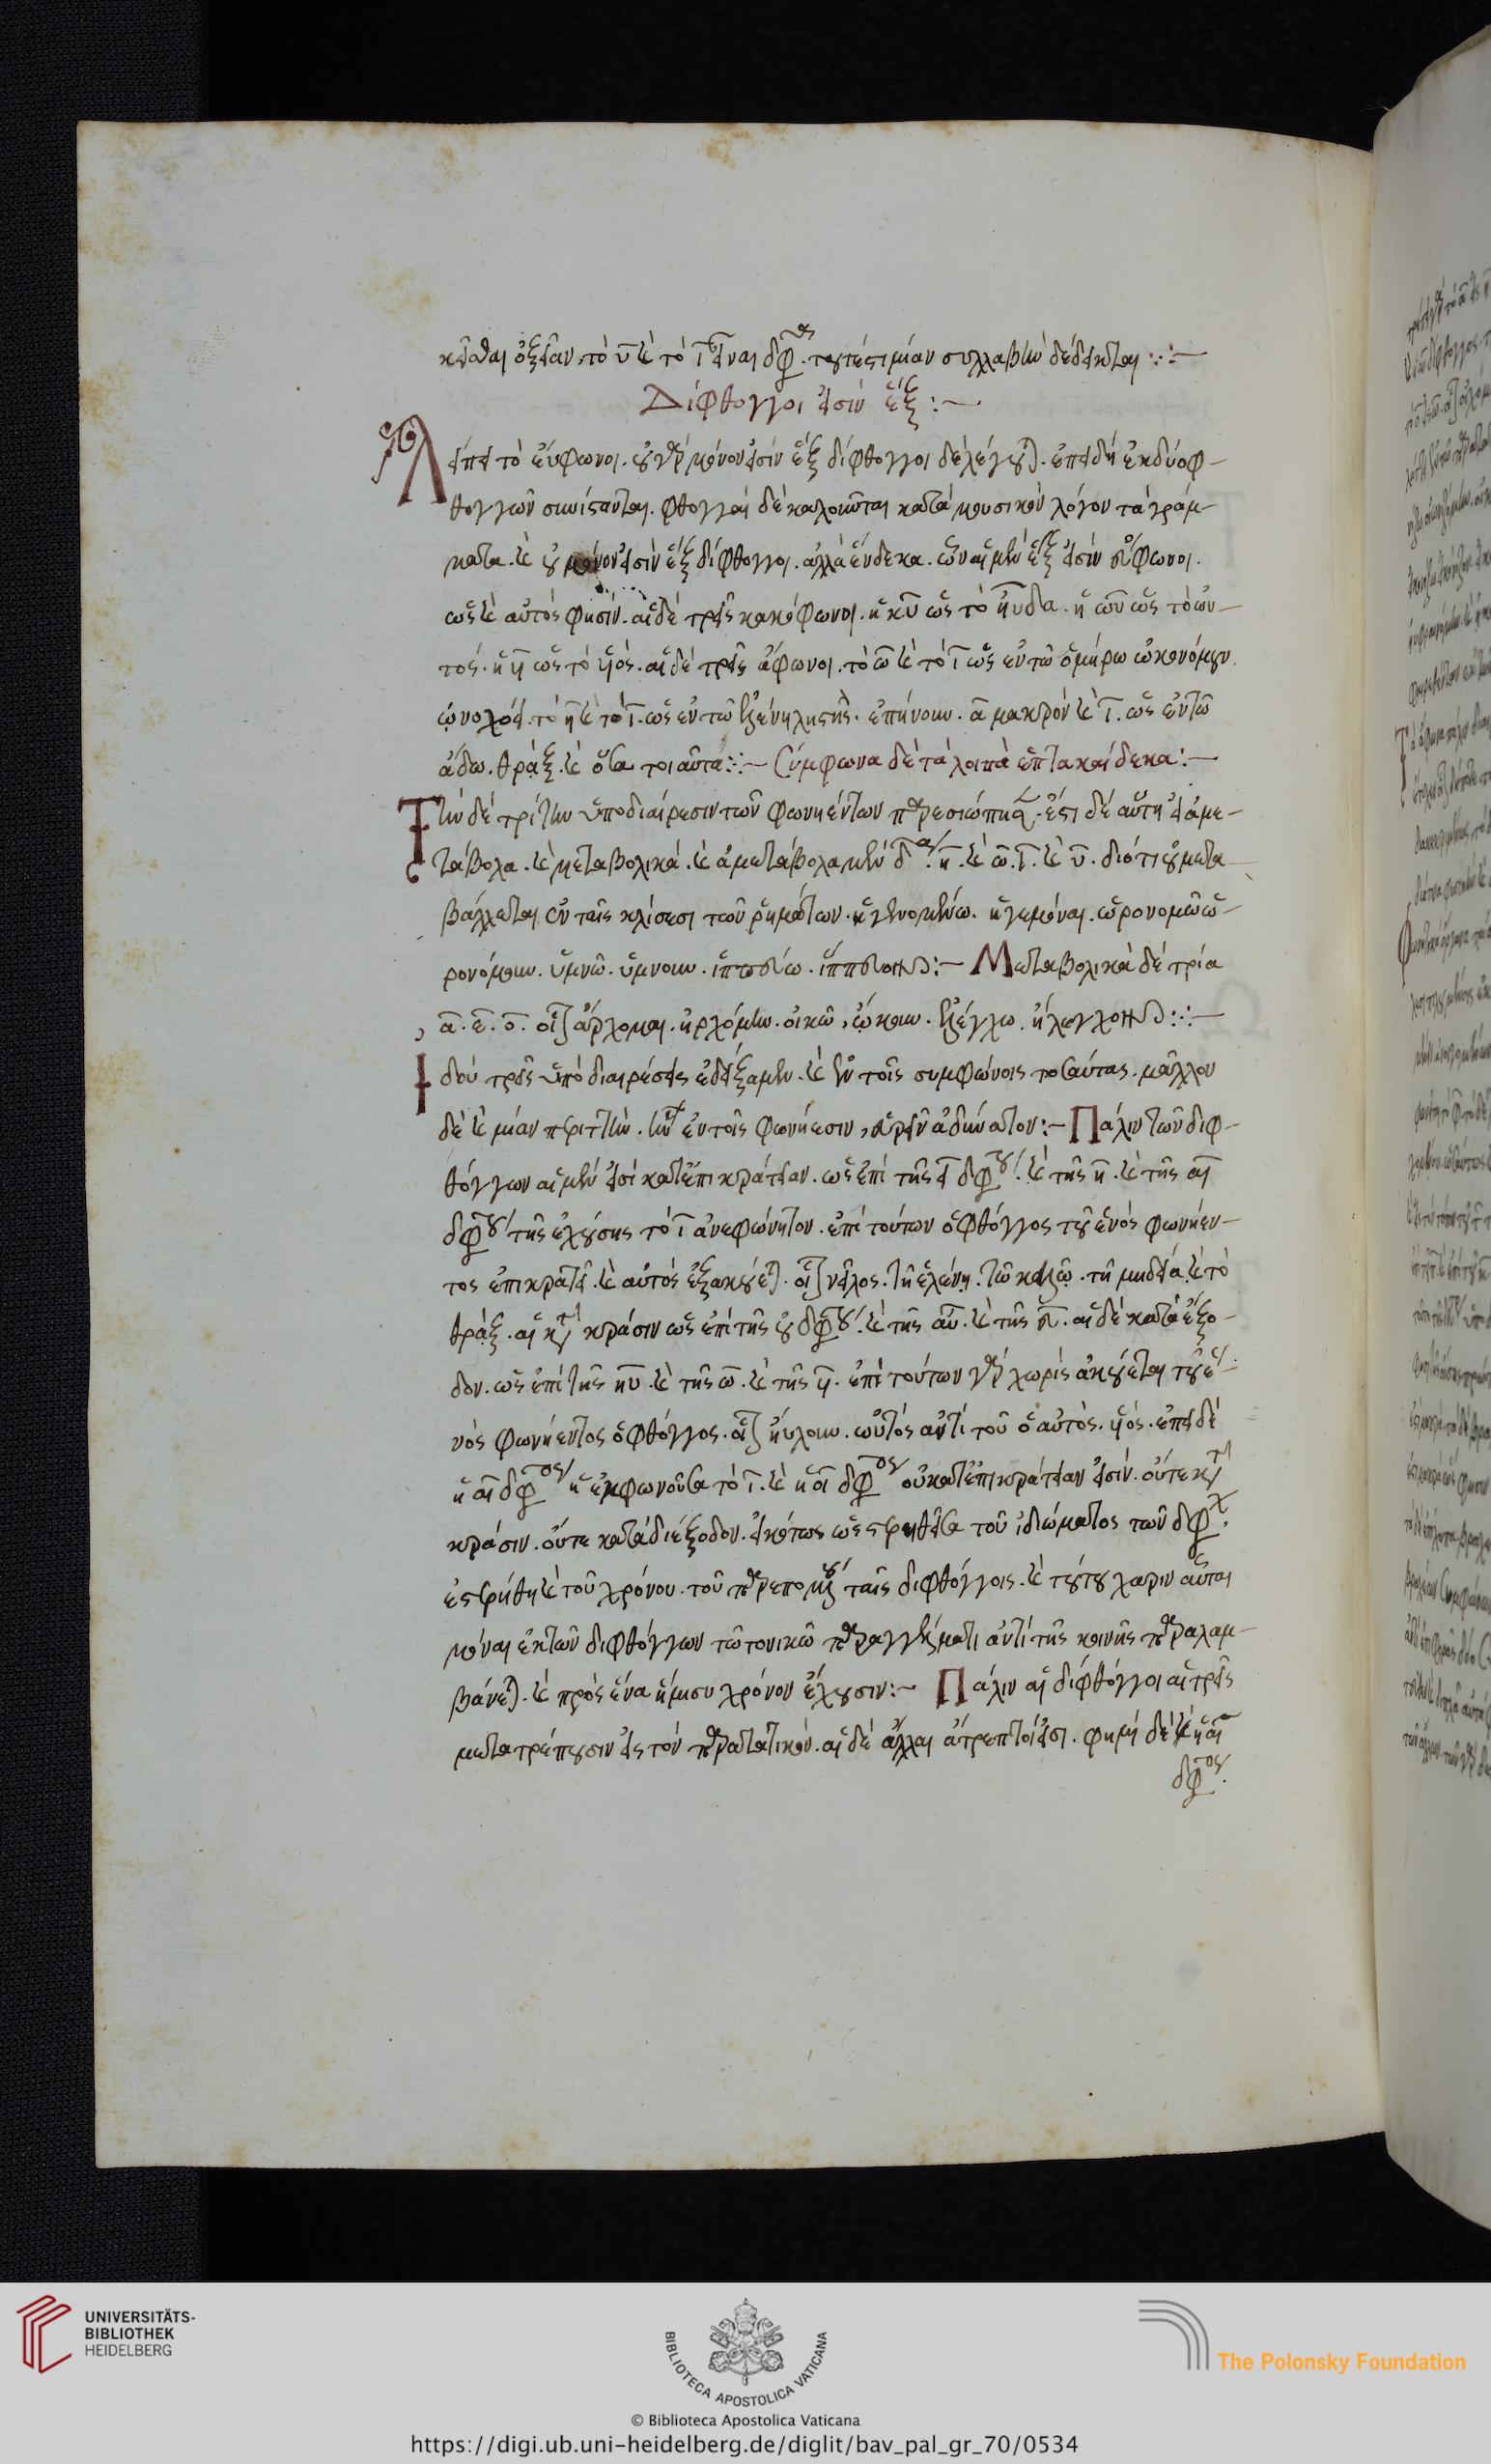 κεῖσθαι ὀξεῖαν. τὸ υ καὶ τὸ ι εἶναι δίφθογγος. τουτέστι μίαν συλλαβὴν δέδεικται :·—
Δίφθογγοι εἰσὶν ἕξ :—
Λείπει τὸ εὔφωνοι. οὐ γὰρ μόνον εἰσὶν ἓξ δίφθογγοι δὲ λέγονται. ἐπειδὴ ἐκ δύο φ-
θογγῶν συνίστανται. φθογγαὶ δὲ καλοῦνται κατὰ μουσικὸν λόγον τὰ γράμ-
ματα. καὶ οὐ μόνον εἰσὶν ἓξ δίφθογγοι. ἀλλὰ ἕνδεκα. ὧν αἱ μὲν ἓξ εἰσὶν εὔφωνοι.
ὡς καὶ αὐτός φησιν. αἱ δὲ τρεῖς κακόφωνοι. ἡ ηυ ὡς τὸ ηὔδα. ἡ ωυ ὡς τὸ ωὐ-
τός. ἡ υι ὡς τὸ υἱός. αἱ δὲ τρεῖς ἄφωνοι. τὸ ω καὶ τὸ ι ὡς ἐν τῷ ὁμήρω
ὠνοχόει. τὸ η καὶ τὸ ι. ὡς ἐν τῷ ληστής. ἐπῄνουν. α μακρὸν καὶ ι. ὡς ἐν τῷ
ᾄδω. θρᾷξ. καὶ ὅσα τοιαῦτα :·— Σύμφωνα δὲ τὰ λοιπὰ ἑπτακαίδεκα :—
Τὴν δὲ τρίτην ὑποδιαίρεσιν τῶν φωνηέντων παρεσιώπησεν. ἔστι δὲ αὕτη εἰς ἀμε-
τάβολα. καὶ μεταβολικά. καὶ ἀμετάβολα μὲν δ. η. καὶ ω. ι. καὶ υ. διότι οὐ μετα-
βάλλεται ἐν ταῖς κλίσεσι τῶν ῥημάτων. ὡρονομῶ ὡ-
ρονόμουν. ὑμνῶ. ὕμνουν. ἱππεύω. ἵππευον :— Μεταβολικὰ δὲ τρία
α. ε. ο. οἷον ἄρχομαι. ἠρχόμην. οἰκῶ, ᾤκουν. ἐλέγχω. ἤλεγχον :·—
Ἰδοὺ τρεῖς ὑποδιαιρέσεις ἐδείξαμεν. καὶ ἐν τοῖς συμφώνοις τοσαύτας. μᾶλλον
δὲ καὶ μίαν περιττήν. ἣν ἐν τοῖς φωνήεσιν, εὑρεῖν ἀδύνατον :— Πάλιν τῶν διφ-
θόγγων αἱ μὲν εἰσὶ κατ' ἐπικράτειαν. ὡς ἐπὶ τῆς ει διφθόγγου. καὶ τῆς η. καὶ τῆς αι
διφθόγγου τῆς ἐχούσης τὸ ι ἀνεκφώνητον. ἐπὶ τούτων ὁ φθόγγος τοῦ ἑνὸς φωνήεν-
τος ἐπικρατεῖ. καὶ αὐτὸς ἐξακούεται. οἷον νεῖλος. τῇ ἑλένῃ. τῷ καλῷ. τῇ μηδείᾳ. καὶ τὸ
θρᾷξ. αἱ κατὰ κρᾶσιν ὡς ἐπὶ τῆς ου διφθόγγου. καὶ τῆς αυ. καὶ τῆς ευ. αἱ δὲ κατὰ διέξο-
δον. ὡς ἐπὶ τῆς ηυ. καὶ τῆς ωυ. καὶ τῆς υι. ἐπὶ τούτων γὰρ χωρὶς ἀκούεται τοῦ ἑ-
νὸς φωνήεντος ὁ φθόγγος. οἷον ηὔλουν. ωὑτὸς ἀντὶ τοῦ ὁ αὐτός. υἱός. ἐπεὶ δὲ
ἡ αι δίφθογγος ἡ ἐκφωνοῦσα τὸ ι. καὶ ἡ οι δίφθογγος οὐ κατ' ἐπικράτειαν εἰσίν. οὔτε κατὰ
κρᾶσιν. οὔτε κατὰ διέξοδον. εἰκότως ὡς στερηθεῖσαι τοῦ ἰδιώματος τῶν διφθόγγων.
ἐστερήθη καὶ τοῦ χρόνου. τοῦ παρεπομένου ταῖς διφθόγγοις. καὶ τούτου χάριν αὗται
μόναι ἐκ τῶν διφθόγγων τῷ τονικῷ παραγγέλματι ἀντὶ τῆς κοινῆς παραλαμ-
βάνεται. καὶ πρὸς ἕνα ἥμισυ χρόνον ἔχουσιν :— Πάλιν αἱ δίφθογγοι αἱ τρεῖς
μετατρέπουσιν εἰς τὸν παρατατικόν. αἱ δὲ ἄλλαι ἄτρεπτοί εἰσι. φημὶ δὲ ἡ αι
δίφθογγος.
UNIVERSITÄTS-
BIBLIOTHEK
HEIDELBERG
BIBLIOTECA APOSTOLICA VATICANA
The Polonsky Foundation
© Biblioteca Apostolica Vaticana
https://digi.ub.uni-heidelberg.de/diglit/bav_pal_gr_70/0534